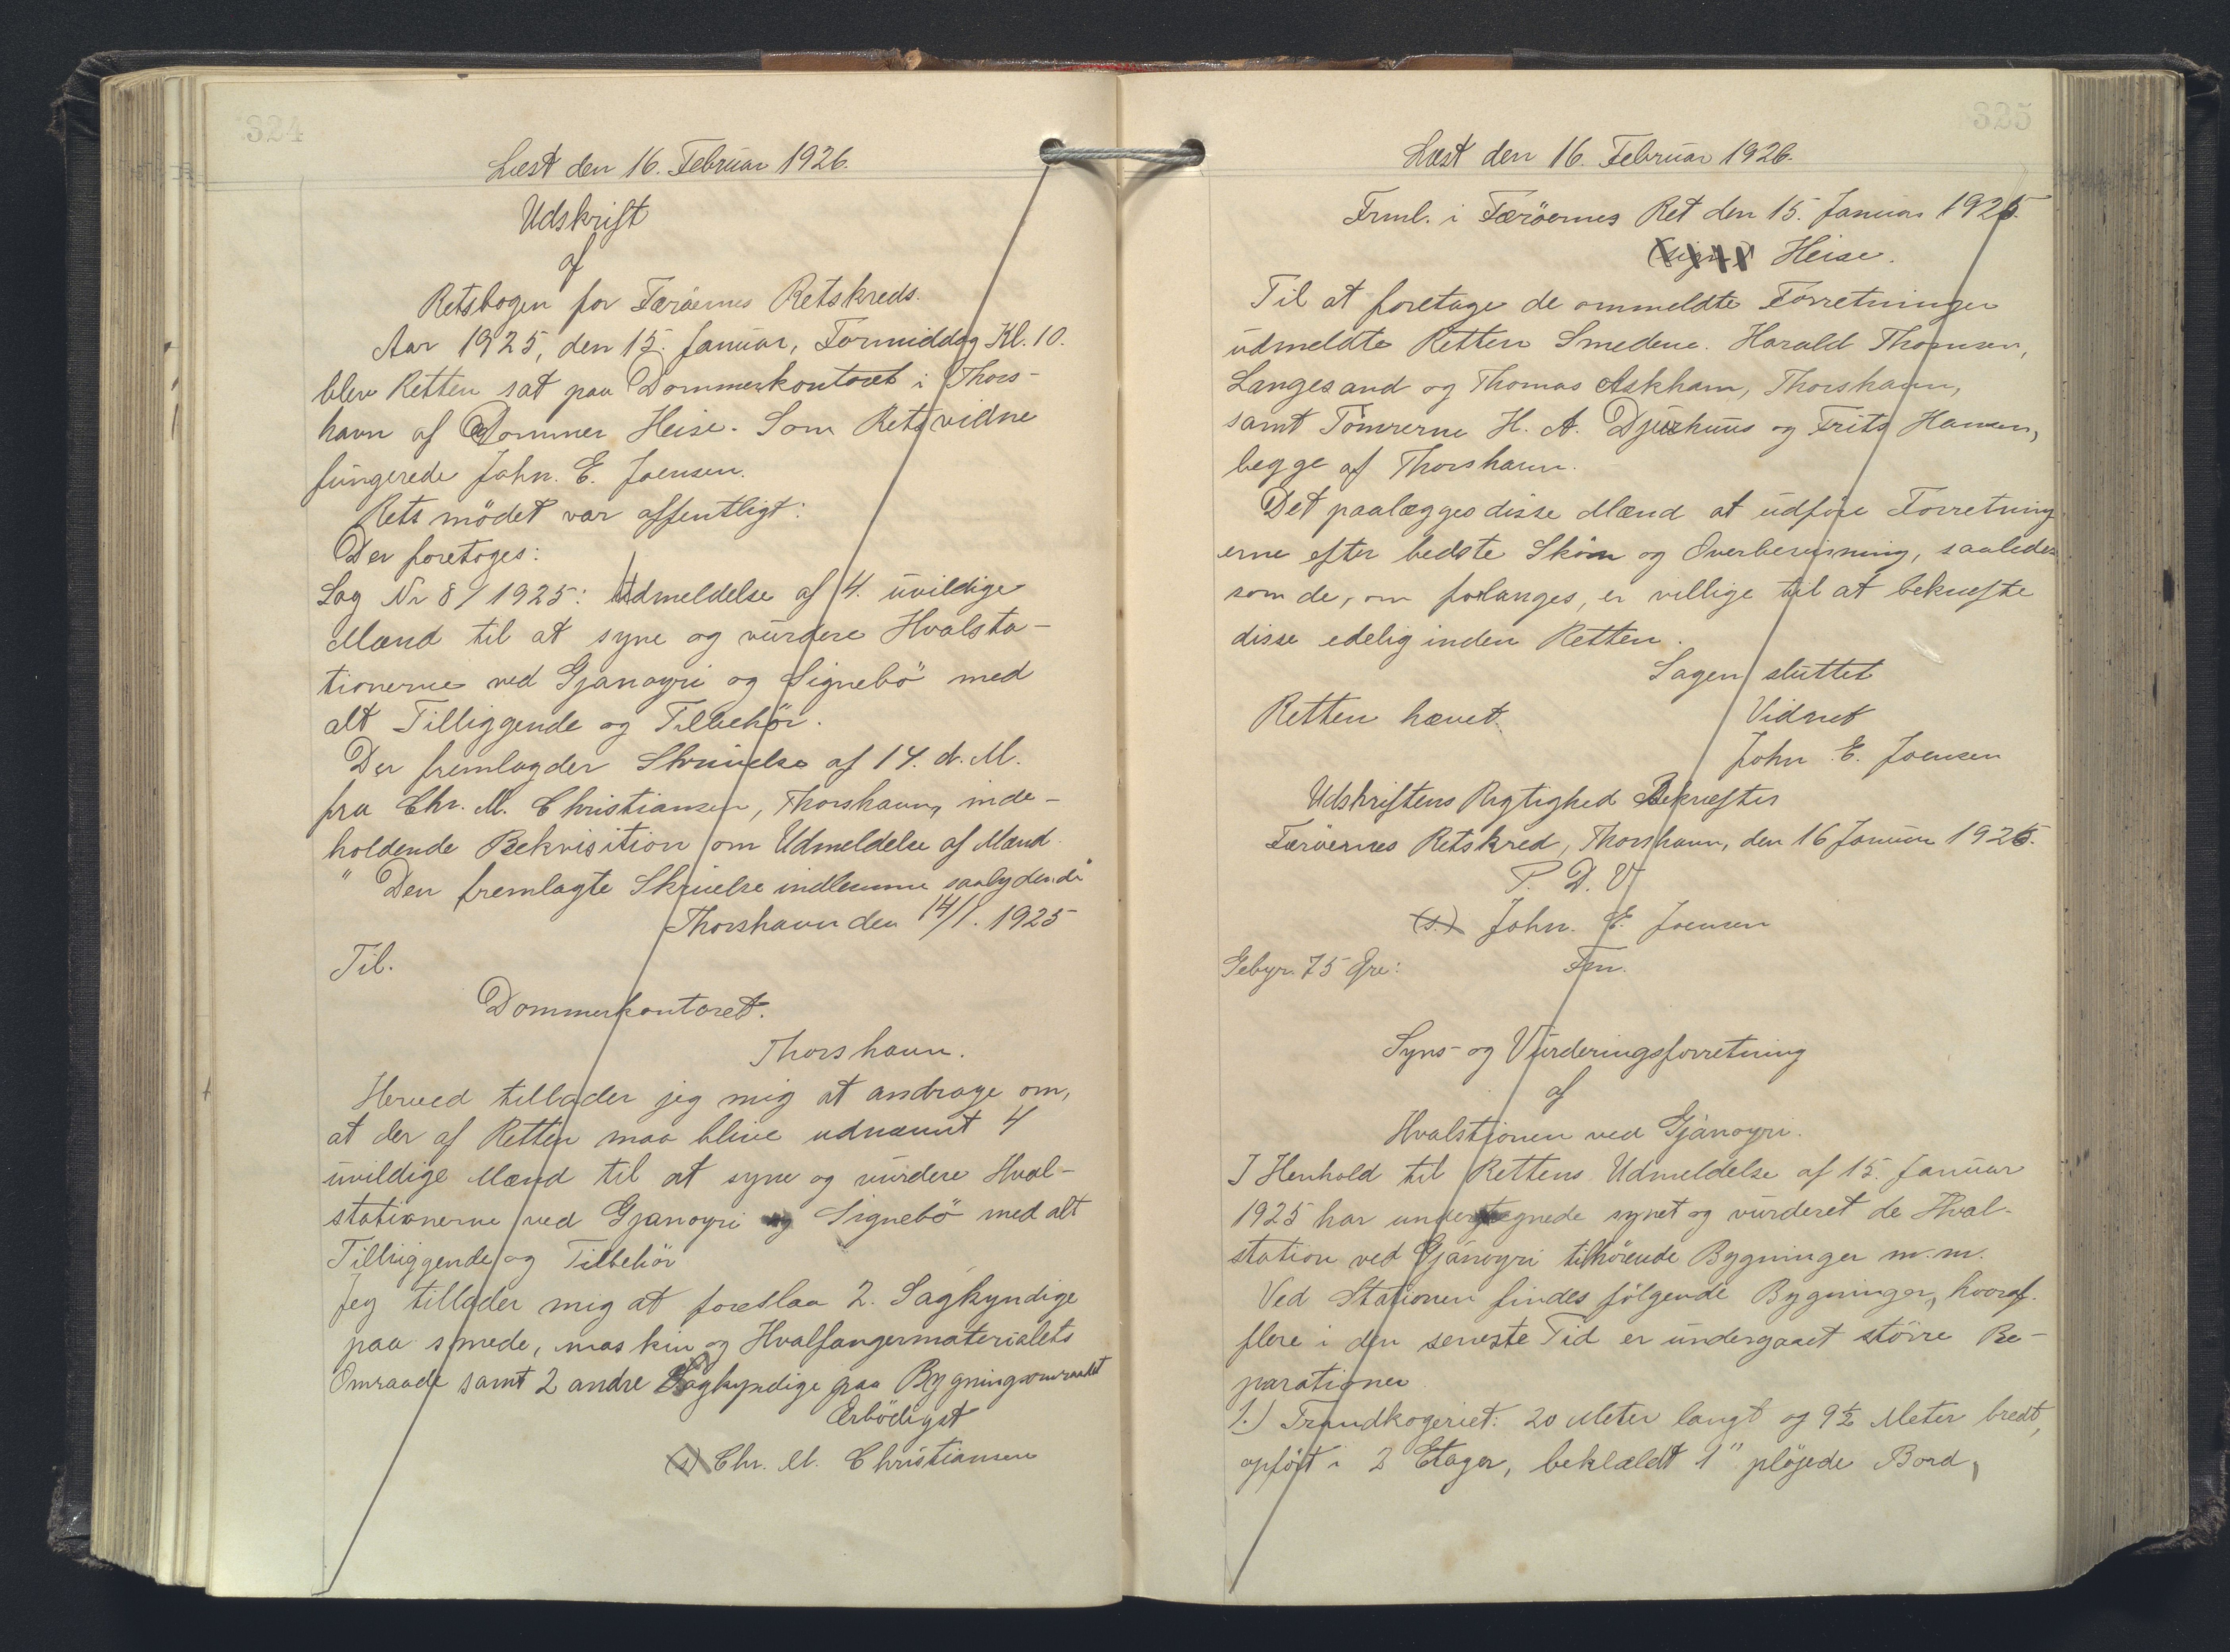 324
Læst den 16. Februar 1926.
Udskrift
af
Retsbogen for Færøernes Retskreds.
Aar 1925, den 15. Januar, Formiddag Kl. 10.
blev Retten sat paa Dommerkontoret i Thors-
havn af Dommer Heise. Som Retsvidne
fungerede John. E. Joensen.
Retsmödet var offentligt:
Der foretoges:
Sag Nr 8/1925: Udmeldelse af 4. uvildige
Mænd til at syne og vurdere Hvalsta-
tionerne ved Gjanoyri og Signebö med
alt Tilliggende og Tilbehör.
Der fremlagdes Skrivelse af 14. d. M.
fra Chr. M. Christiansen, Thorshavn, inde-
holdende Rekvisition om Udmeldelse af Mænd.
" Den fremlagte Skrivelse indlemme saalydende"
Thorshavn den 14/1. 1925
Til.
Dommerkontoret.
Thorshavn.
Herved tillader jeg mig at andrage om,
at der af Retten maa blive udnævnt 4
uvildige Mænd til at syne og vurdere Hval-
stationerne ved Gjanoyri og Signebö med alt
Tilliggende og Tilbehör
Jeg tillader mig at foreslaa 2. Sagkyndige
paa smede, maskin og Hvalfangermaterialets
Omraade samt 2 andre Sagkyndige paa Bygningsomraadet
Ærbödigst
(s) Chr. M. Christiansen
325
Læst den 16. Februar 1926.
Frml. i Færöernes Ret den 15. Januar 1925.
(sign) Heise.
Til at foretage de ommeldte Forretninger
udmeldte Retten Smedene. Harald Thomsen,
Langesand og Thomas Askham, Thorshavn,
samt Tömrerne H. A. Djurhuus og Frits Hansen,
begge af Thorshavn.
Det paalægges disse Mænd at udföre Forretning
erne efter bedste Skön og Overbevisning, saaledes
som de, om forlanges, er villige til at bekræfte
disse edelig inden Retten.
Sagen sluttet
Retten hævet. Vidnet
John E. Joensen
Udskriftens Rigtighed Bekræftes
Færöernes Retskred, Thorshavn, den 16 Januar 1925.
P. D. V
(s.) John. E. Joensen
Gebyr. 75 Öre: Fm.
Syns- og Vurderingsforretning
af
Hvalstionen ved Gjánoyri.
I Henhold til Rettens Udmeldelse af 15. Januar
1925 har undertegnede synet og vurderet de Hval-
station ved Gjánoyri tilhörende Bygninger m.m.
Ved Stationen findes fölgende Bygninger, hvoraf
flere i den seneste Tid er undergaaet större Re-
parationer
1.) Trandkogeriet: 20 Meter langt og 9½ Meter bredt,
opfört i 2 Etager, beklældt 1" plöjede Bord,